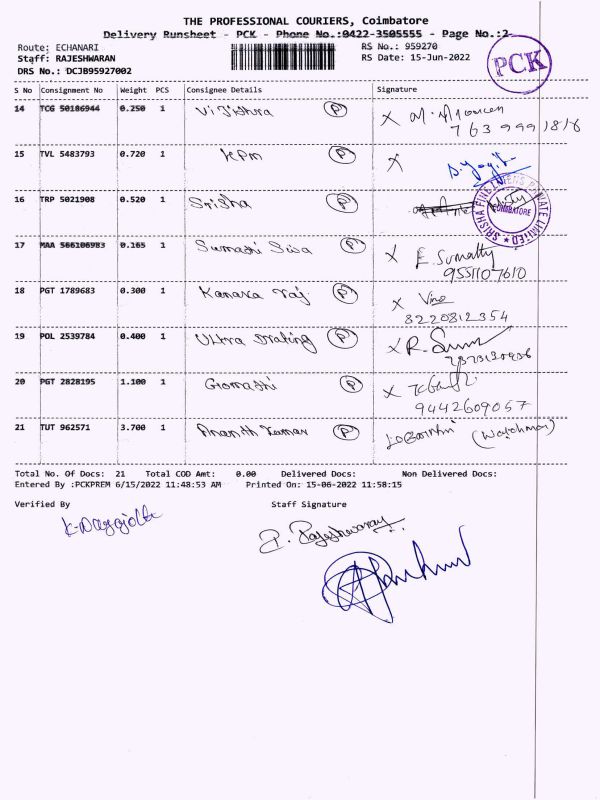 THE PROFESSIONAL COURIERS, Coimbatore
Delivery Runsheet - PCK - Phone No.:0422-3505555 - Page No.:2
Route: ECHANARI
RS No.: 959270
Staff: RAJESHWARAN
RS Date: 15-Jun-2022
DRS No.: DCJB95927002
PCK
S No Consignment No Weight PCS Consignee Details Signature
14 TCG 50186944 0.250 1 P
15 TVL 5483793 0.720 1 KPM P
16 TRP 5021908 0.520 1 Srisha P
COIMBATORE
17 MAA 566106983 0.165 1 Sumathi Siva P X E. Sumathy
9551107610
18 PGT 1789683 0.300 1 Kanaka raj P X Vino
8220812354
19 POL 2539784 0.400 1 Ultra P X R.
20 PGT 2828195 1.100 1 Gomathi P X
9442609057
21 TUT 962571 3.700 1 Ananth Kumar P (Watchman)
Total No. Of Docs: 21 Total COD Amt: 0.00 Delivered Docs: Non Delivered Docs:
Entered By :PCKPREM 6/15/2022 11:48:53 AM Printed On: 15-06-2022 11:58:15
Verified By Staff Signature
P. Rajeshwaran